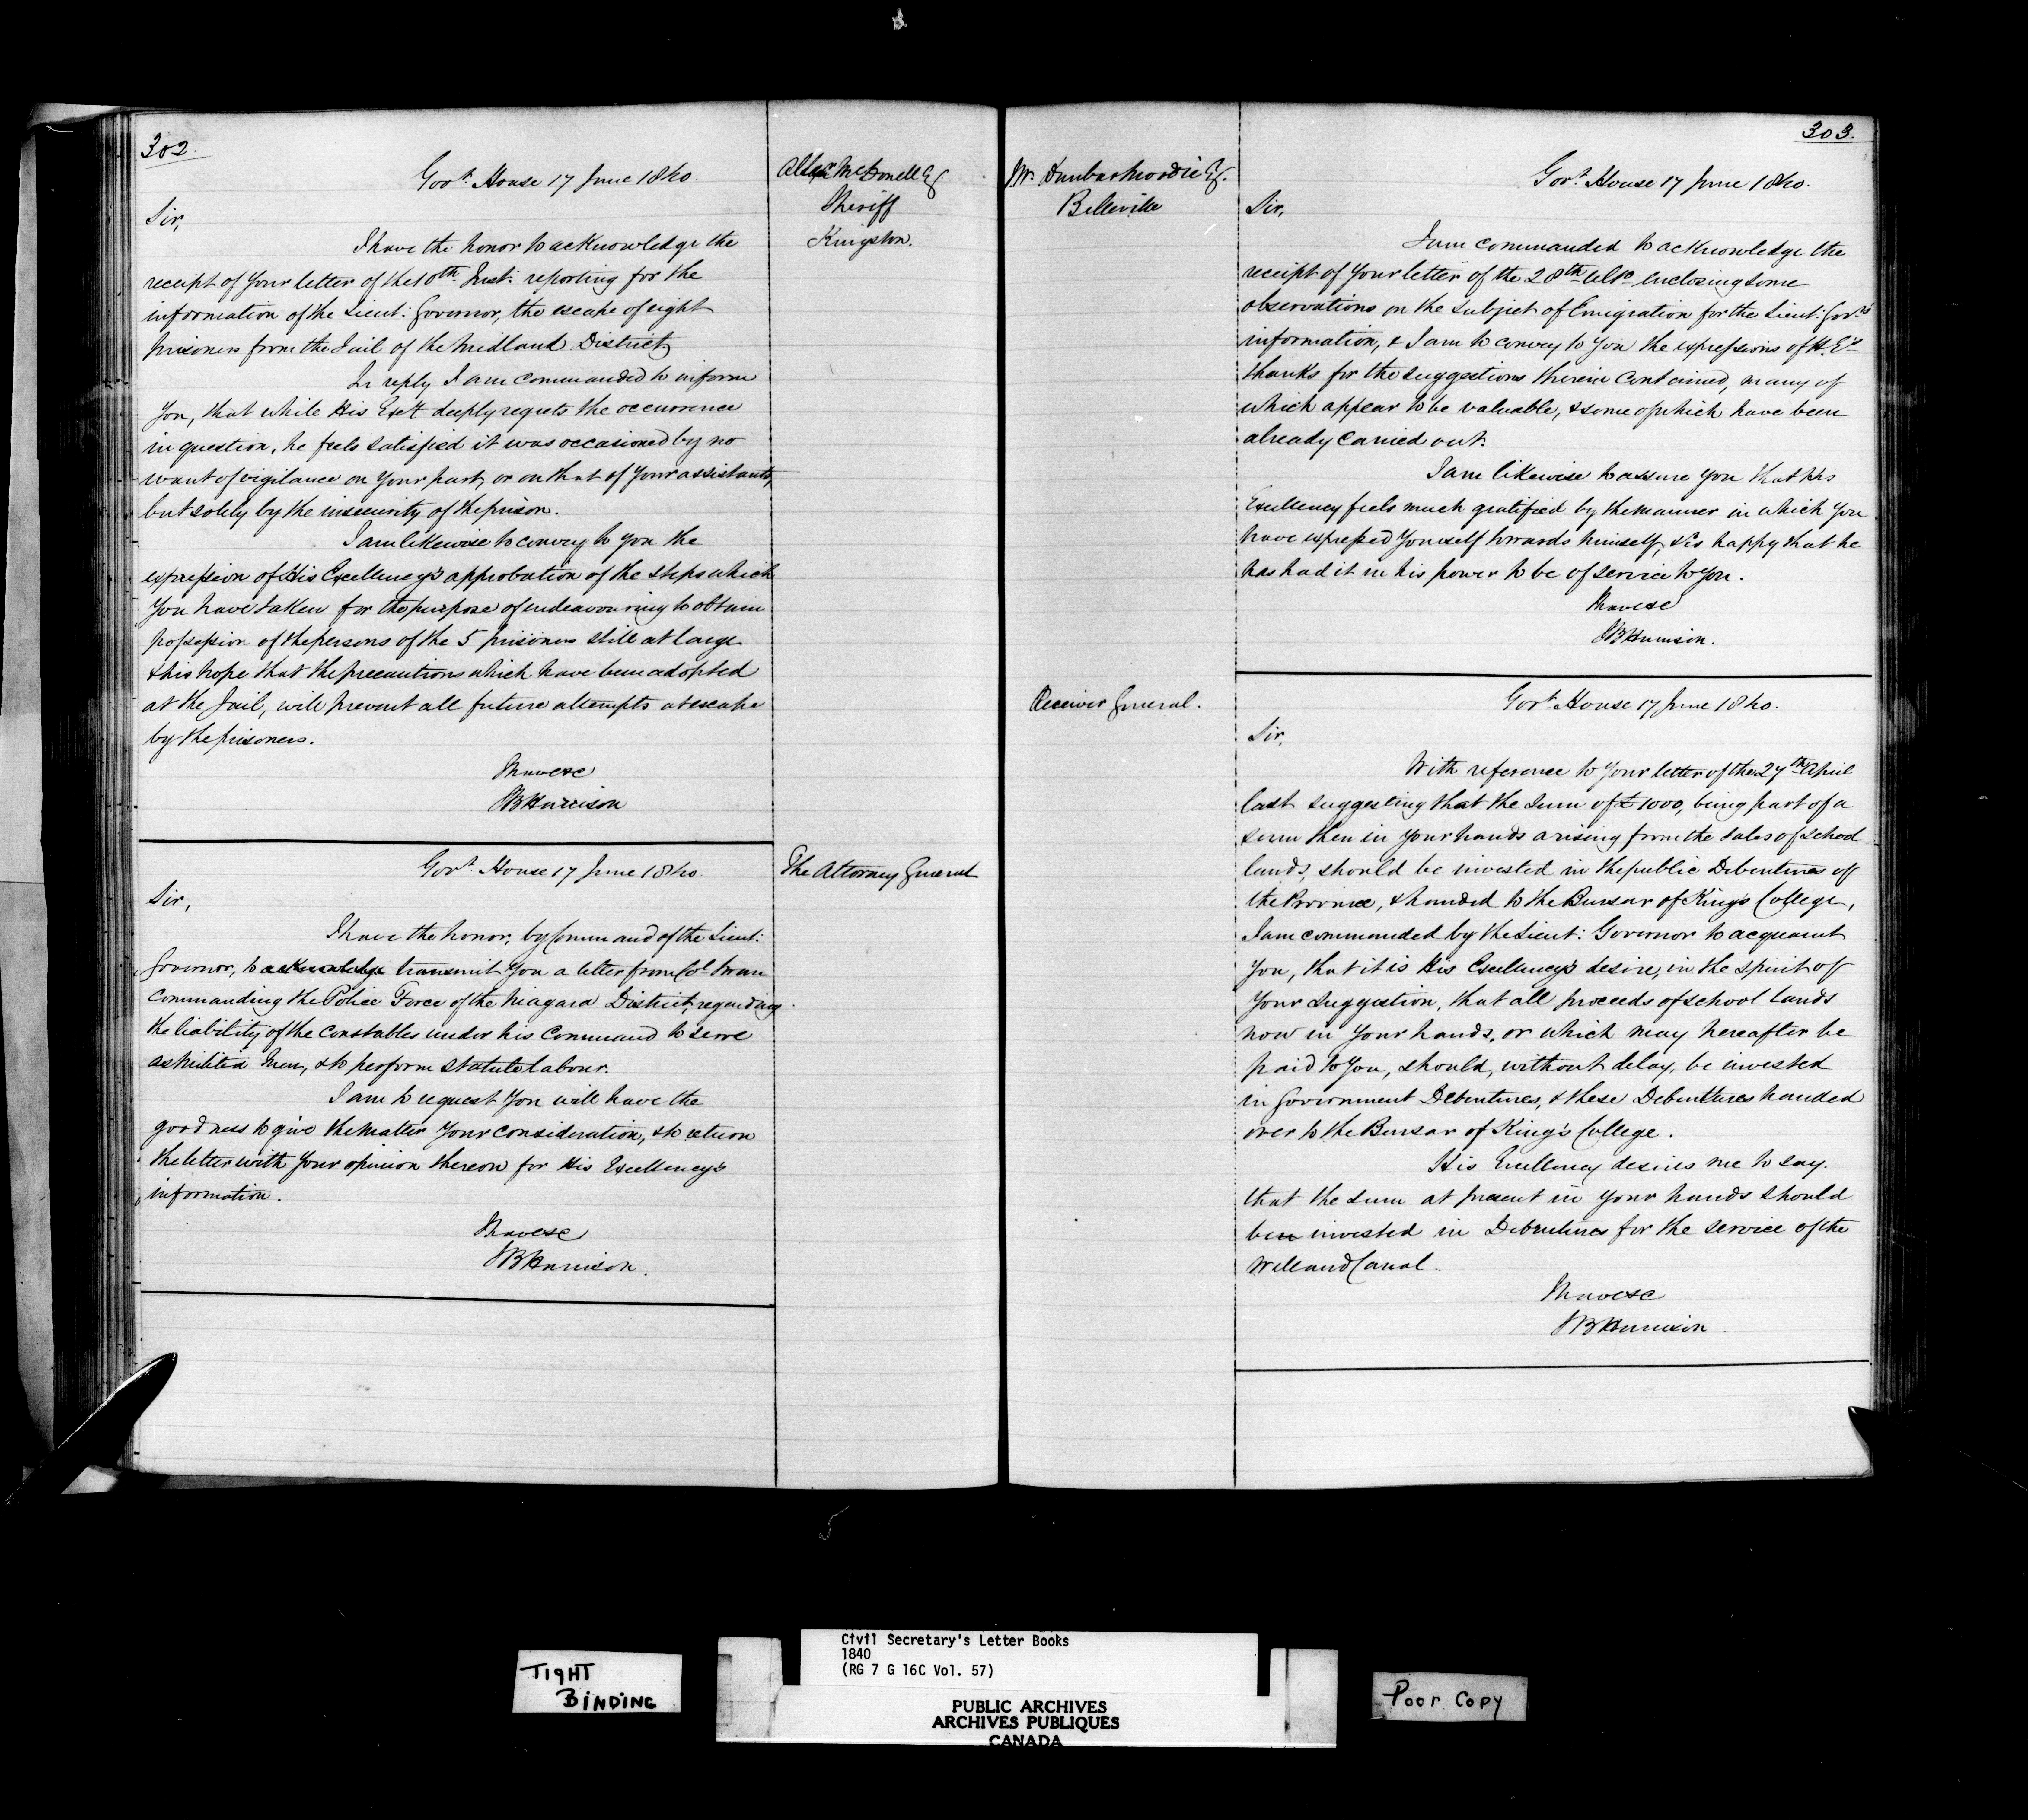 302.
Govt. House 17 June 1840.
Allan McDonell Esq
Sheriff
Kingston.
Sir,
I have the honor to acknowledge the
receipt of your letter of the 10th Inst: reporting for the
information of the Lieut: Governor, the escape of eight
prisoners from the Jail of the Midland District,
In reply I am commanded to inform
you, that while His Excy deeply regrets the occurrence
in question, he feels satisfied it was occasioned by no
want of vigilance on your part, or on that of your assistants,
but solely by the insecurity of the prison.
I am likewise to convey to you the
expression of His Excellency's approbation of the steps which
you have taken for the purpose of endeavouring to obtain
possession of the persons of the 5 prisoners still at large
& his hope that the precautions which have been adopted
at the Jail, will prevent all future attempts at escape
by the prisoners.
I have &c
SB Harrison
Govt. House 17 June 1840.
The Attorney General
Sir,
I have the honor, by Command of the Lieut:
Governor, to acknowledge transmit you a letter from Col.
Commanding the Police Force of the Niagara District, regarding
the liability of the constables under his Command to serve
as Militia Men, & to perform statute labour.
I am to request you will have the
goodness to give the Matter your consideration, & to return
the letter with your opinion thereon for His Excellency's
information.
I have &c
SB Harrison.
303.
J W. Dunbar Moodie Esq.
Belleville
Govt. House 17 June 1840.
Sir,
I am commanded to acknowledge the
receipt of your letter of the 28th ulto. enclosing some
observations on the subject of Emigration for the Lieut: Govr's
information, & I am to convey to you the expressions of H. Ex's
thanks for the suggestions therein contained, many of
which appear to be valuable, & some of which have been
already carried out.
I am likewise to assure you that His
Excellency feels much gratified by the manner in which you
have expressed yourself towards himself, & is happy that he
has had it in his power to be of service to you.
I have &c
SB Harrison.
Receiver General.
Govt. House 17 June 1840.
Sir,
With reference to your letter of the 27th April
last suggesting that the sum of £1000, being part of a
sum then in your hands arising from the sales of school
lands, should be invested in the public Debentures of
the Province, & handed to the Bursar of King's College,
I am commanded by the Lieut: Governor to acquaint
you, that it is His Excellency's desire, in the spirit of
your suggestion, that all proceeds of school lands
now in your hands, or which may hereafter be
paid to you, should, without delay, be invested
in Government Debentures, & these Debentures handed
over to the Bursar of King's College.
His Excellency desires me to say.
that the sum at present in your hands should
been invested in Debentures for the service of the
Welland Canal.
I have &c
SB Harrison.
TIGHT
BINDING
Civil Secretary's Letter Books
1840
(RG 7 G 16C Vol. 57)
PUBLIC ARCHIVES
ARCHIVES PUBLIQUES
CANADA
Poor Copy